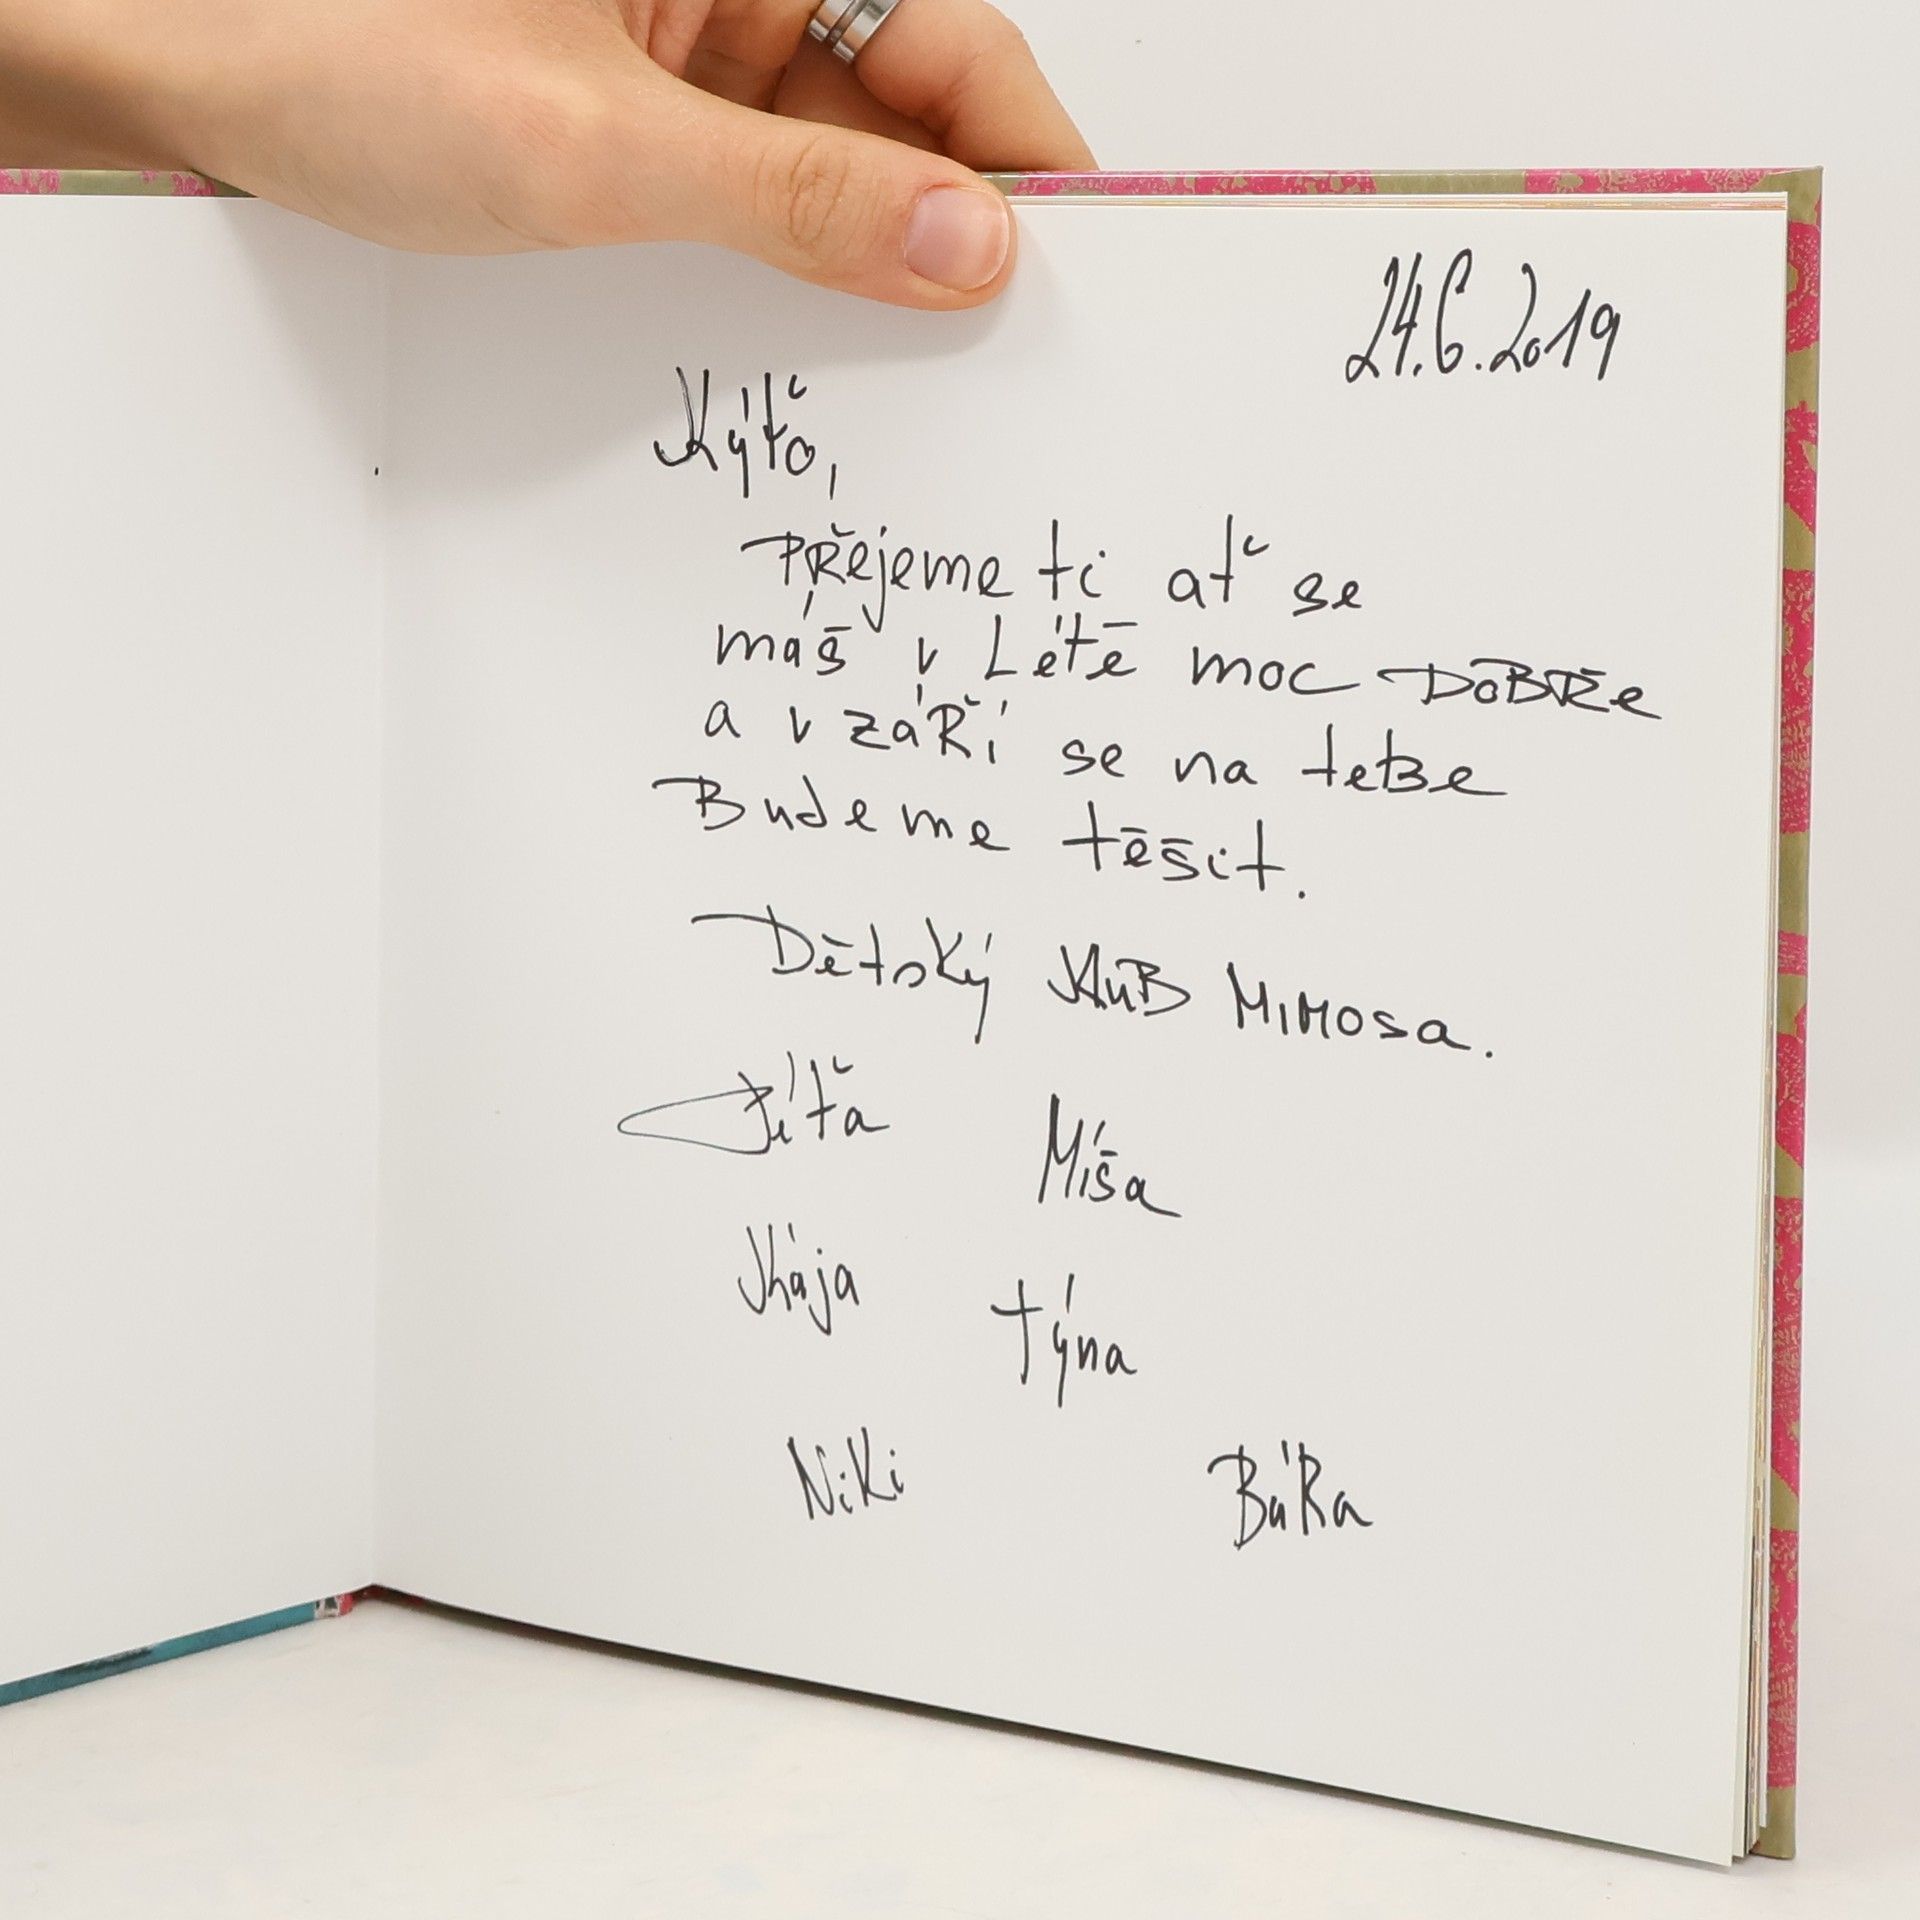 24.6.2019
Kýťo,
Přejeme ti ať se
máš v Létě moc DoBŘe
a v záŘí se na teBe
Budeme těšit.
Dětský KluB MIMOSa.
Jíťa
Míša
Kája
Týna
NiKi
BáRa